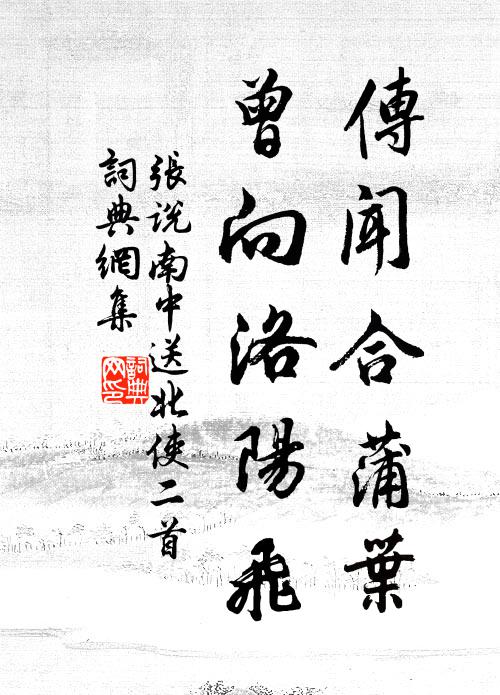 傳聞合蒲葉
曾向洛陽飛
張説南中送北使二首
詞典網集
詞典
网印